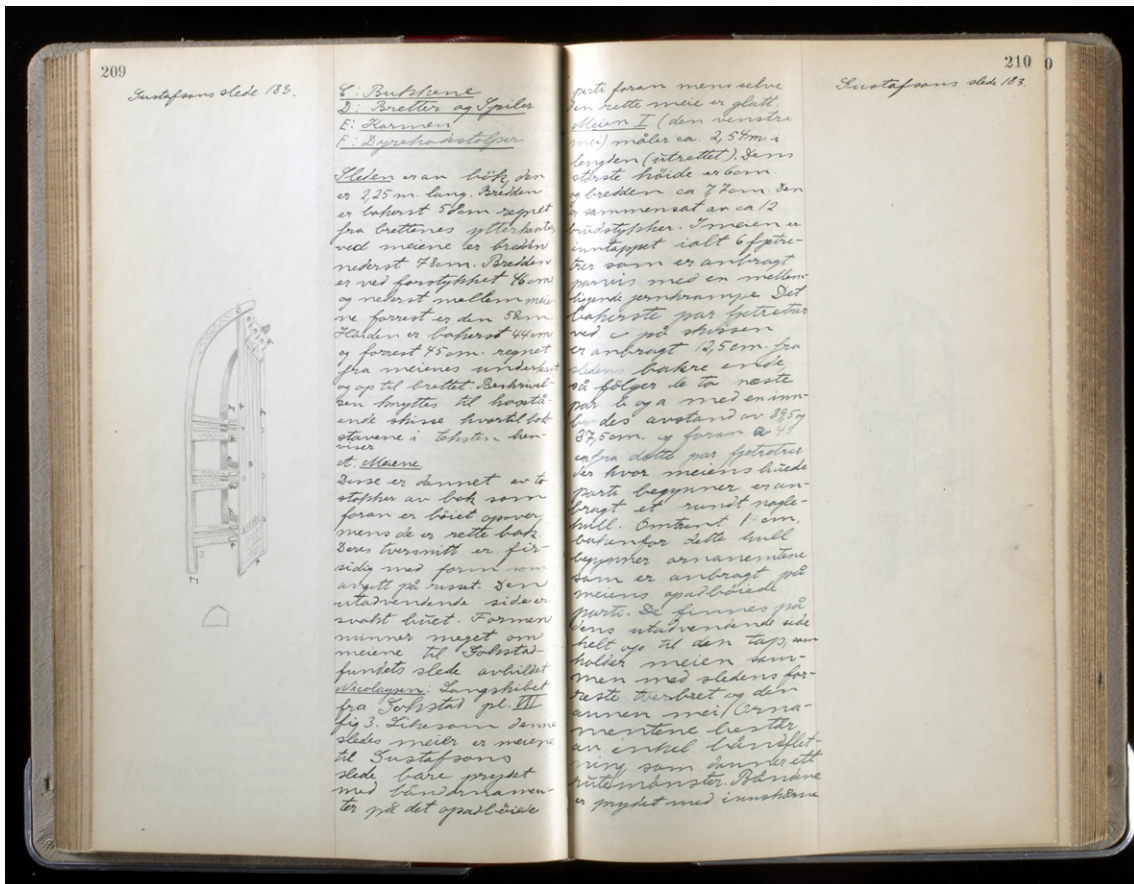 209
Gustafsons slede 183.
C: Bukkene
D: Bretter og Spiler
E: Karmen
F: Dyrehodestolper
Sleden er av bök, den
er 2,25 m. lang. Bredden
er bakerst 58 cm regnet
fra brettenes ytterkanter,
ved meiene er bredden
nederst 78 cm. Bredden
er ved forstykket 46 cm
og nederst mellem meie-
ne forrest er den 58 cm.
Höiden er bakerst 44 cm
og forrest 45 cm. regnet
fra meienes underkant
og op til brettet. Beskrivel-
sen knyttes til hosstå-
ende skisse hvortil bok-
stavene i teksten hen-
viser
A. Meiene
Disse er dannet av to
stykker av bök som
foran er böiet opover
mens de er rette bak.
Deres tversnitt er fir-
sidig med form som
avsatt på risset. Den
utadvendende side er
svakt buet. Formen
minner meget om
meiene til Gokstad-
fundets slede avbildet
Nicolaysen: Langskibet
fra Gokstad pl. VIII
fig 3. Likesom denne
sledes meier er meiene
til Gustafsons
slede bare prydet
med båndornamen-
ter på det opadböiede
210
Gustafsons slede 183.
parti foran mens selve
den rette meie er glatt.
Meien I (den venstre
mei) måler ca. 2,54 m. i
lengden (utrettet). Dens
störste höide er 6 cm.
og bredden ca 7,7 cm. Den
er sammensat av ca 12
brudstykker. I meien er
inntappet ialt 6 fjetre-
trer som er anbragt
parvis med en mellem-
liggende jernkrampe. Det
bakerste par fjetretrær
ved c på skissen
er anbragt 12,5 cm. fra
sledens bakre ende,
så fölger de to næste
par b og a med en inn-
byrdes avstand av 39,5 og
37,5 cm. og foran a 49
cm fra dette par fjetretrær
der hvor meiens buede
parti begynner er an-
bragt et rundt nagle-
hull. Omtrent 1 cm.
bakenfor dette hull
begynner ornamentene
som er anbragt på
meiens opadböiede
parti. De finnes på
dens utadvendende side
helt op til den tap, som
holder meien sam-
men med sledens for-
reste tverbret og den
annen mei. Orna-
mentene består
av enkel båndflet-
ning, som danner ett
rutemönster. Båndene
er prydet med innskårne